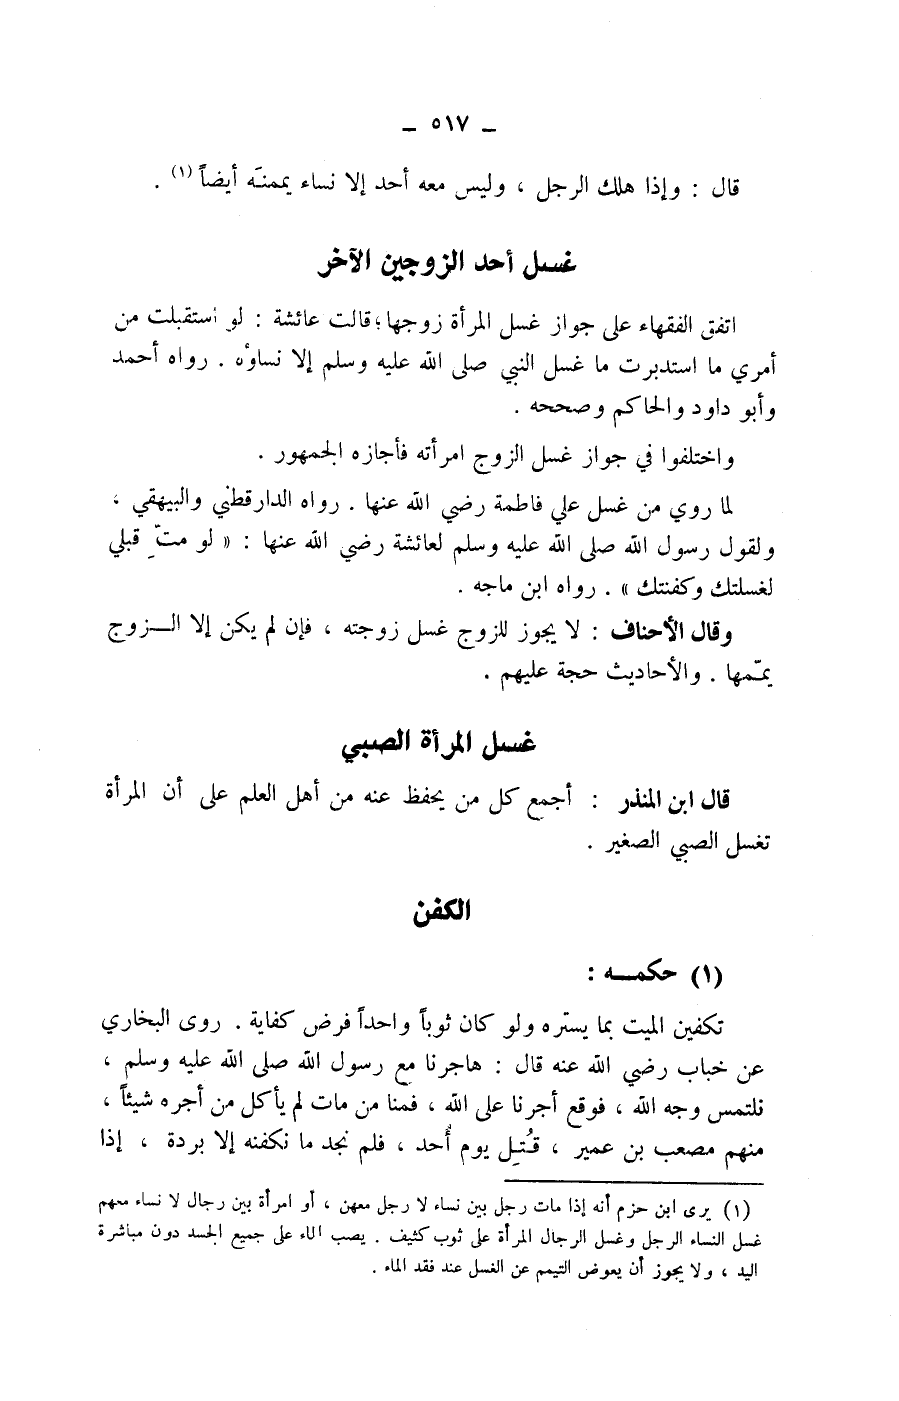 ـ ٥١٧ ـ
قال : وإذا هلك الرجل ، وليس معه أحد إلا نساء يممنَه أيضاً (١) .
غسل أحد الزوجين الآخر
اتفق الفقهاء على جواز غسل المرأة زوجها؛ قالت عائشة : لو استقبلت من
أمري ما استدبرت ما غسل النبي صلى الله عليه وسلم إلا نساوُه . رواه أحمد
وأبو داود والحاكم وصححه .
واختلفوا في جواز غسل الزوج امرأته فأجازه الجمهور .
لما روي من غسل علي فاطمة رضي الله عنها . رواه الدارقطني والبيهقي ،
ولقول رسول الله صلى الله عليه وسلم لعائشة رضي الله عنها : « لو متِّ قبلي
لغسلتك وكفنتك » . رواه ابن ماجه .
وقال الأحناف : لا يجوز للزوج غسل زوجته ، فإن لم يكن إلا الـــزوج
يمّمها . والأحاديث حجة عليهم .
غسل المرأة الصبي
قال ابن المنذر : أجمع كل من يحفظ عنه من أهل العلم على أن المرأة
تغسل الصبي الصغير .
الكفن
(١) حكمـــه :
تكفين الميت بما يستره ولو كان ثوباً واحداً فرض كفاية . روى البخاري
عن خباب رضي الله عنه قال : هاجرنا مع رسول الله صلى الله عليه وسلم ،
نلتمس وجه الله ، فوقع أجرنا على الله ، فمنا من مات لم يأكل من أجره شيئاً ،
منهم مصعب بن عمير ، قُتِل يوم أُحد ، فلم نجد ما نكفنه إلا بردة ، إذا
(١) يرى ابن حزم أنه إذا مات رجل بين نساء لا رجل معهن ، أو امرأة بين رجال لا نساء معهم
غسل النساء الرجل وغسل الرجال المرأة على ثوب كثيف . يصب الماء على جميع الجسد دون مباشرة
اليد ، ولا يجوز أن يعوض التيمم عن الغسل عند فقد الماء .